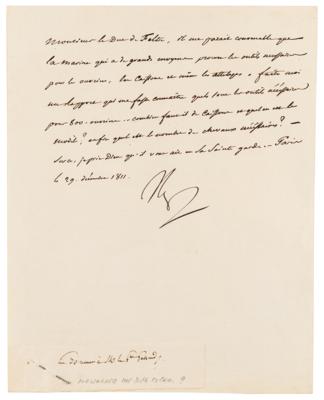 Monsieur le Duc de Feltre, il me paraît convenable que
la marine qui a de grands moyens procure les outils nécessaires
pour les ouvriers, les caissons et même les attelages. faites moi
un rapport qui me fasse connaître quels sont les outils nécessaires
pour 800 ouvriers. – combien faut-il de caissons et quel en est le
modèle? enfin quel est le nombre de chevaux nécessaires? –
Sur ce, je prie Dieu qu'il vous ait en sa Sainte garde. – Paris
le 29 décembre 1811.
Np